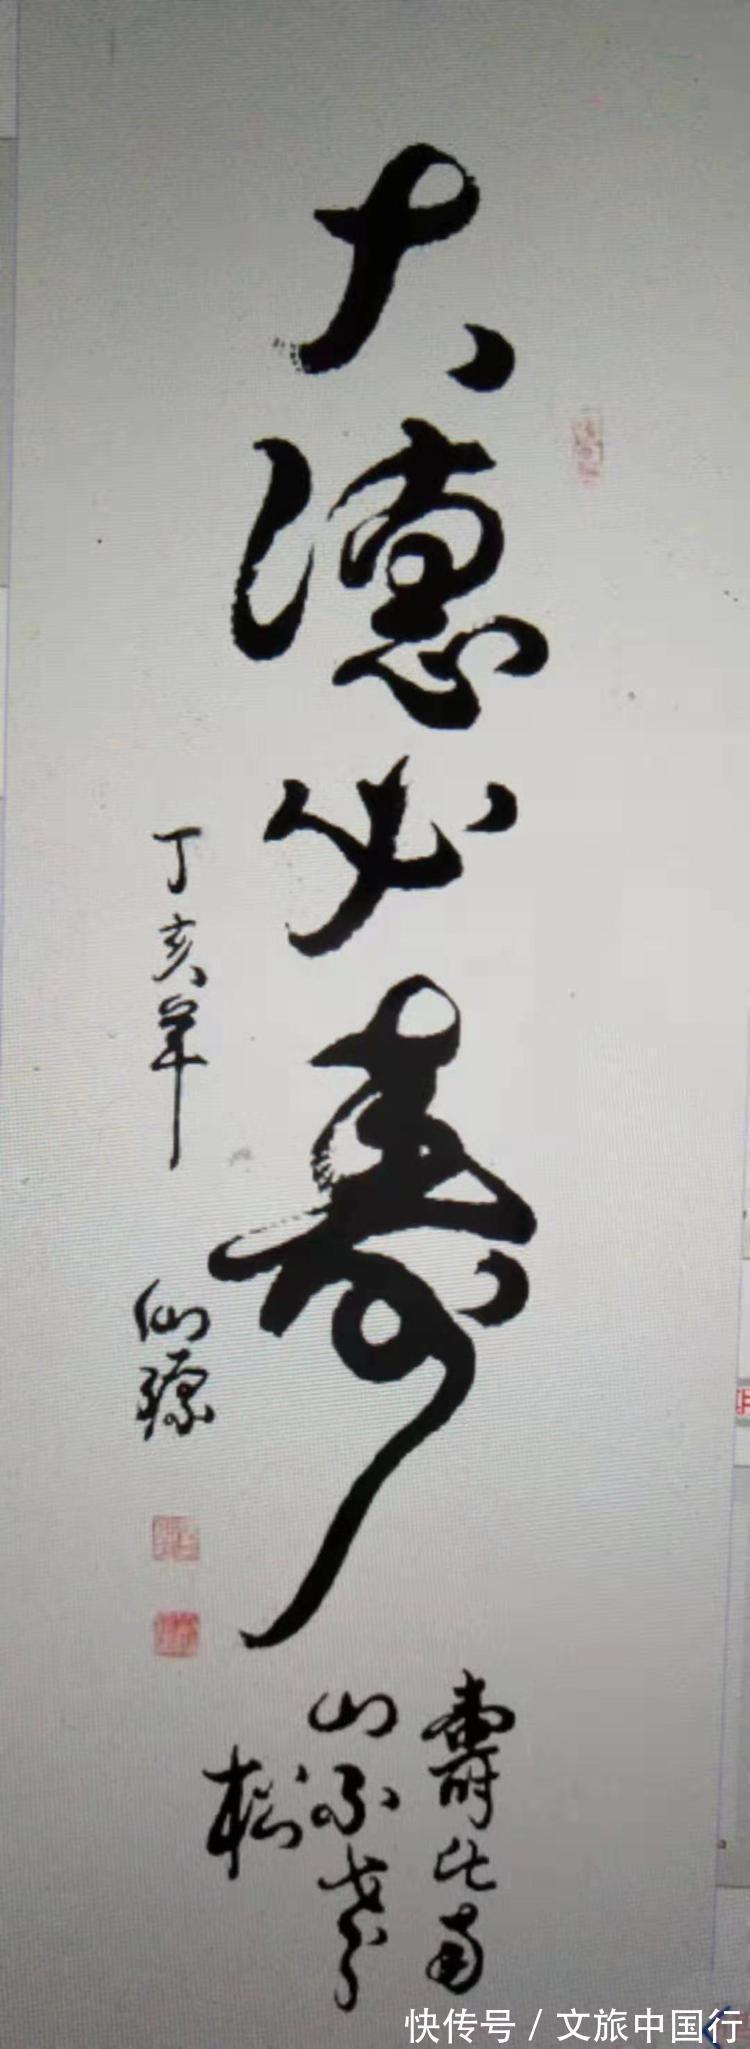 大德必寿
丁亥年
仙源
壽比南
山不老
松
快传号 / 文旅中国行